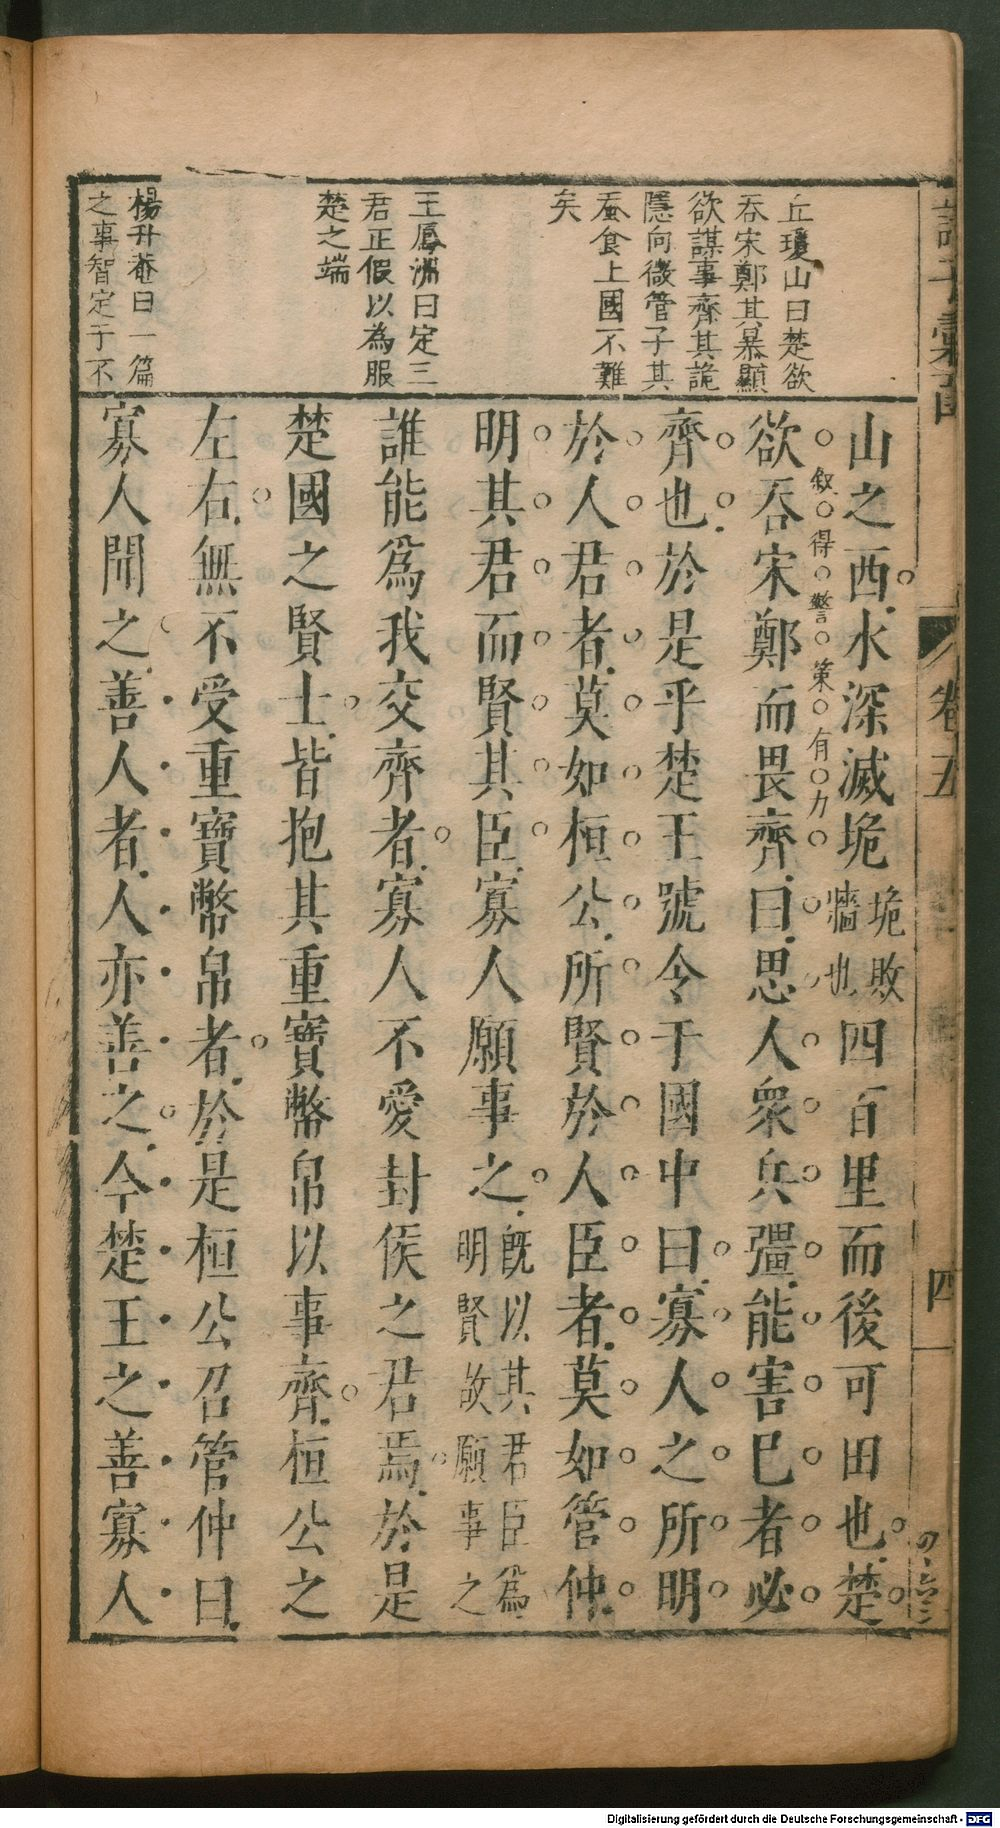 諸子彙函
卷五
四
丘瓊山曰楚欲
吞宋鄭其暴顯
欲謀事齊其詭
隱向微管子其
蚕食上國不難
矣
王鳳洲曰定三
君正假以為服
楚之端
楊升菴曰一篇
之事智定于不
山之西水深滅垝垝敗牆也四百里而後可田也楚
敘得警策有力
欲吞宋鄭而畏齊曰思人衆兵彊能害巳者必
齊也於是乎楚王號令于國中曰寡人之所明
於人君者莫如桓公所賢於人臣者莫如管仲
明其君而賢其臣寡人願事之旣以其君臣爲明賢故願事之
誰能爲我交齊者寡人不愛封侯之君焉於是
楚國之賢士皆抱其重寶幣帛以事齊桓公之
左右無不受重寶幣帛者於是桓公召管仲曰
寡人聞之善人者人亦善之今楚王之善寡人
Digitalisierung gefördert durch die Deutsche Forschungsgemeinschaft - DFG